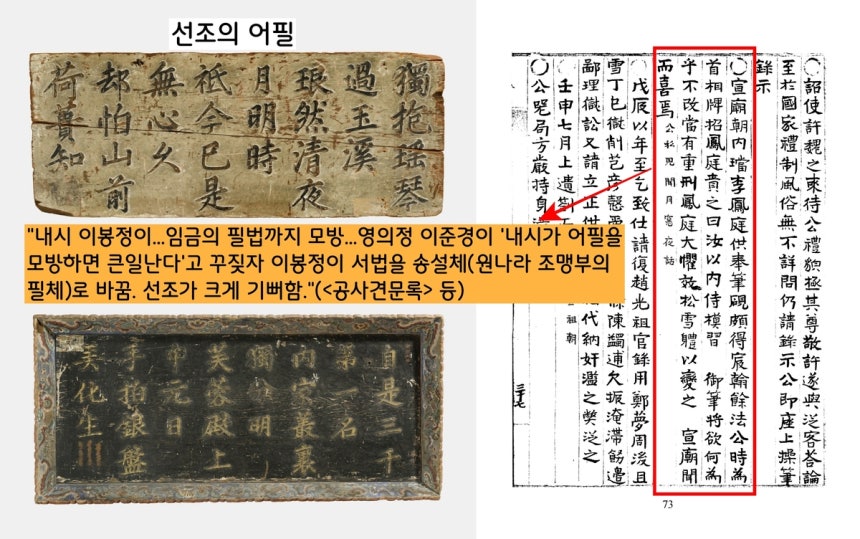 선조의 어필
獨抱瑤琴
過玉溪
琅然清夜
月明時
祗今已是
無心久
却怕山前
荷蕢知
"내시 이봉정이...임금의 필법까지 모방...영의정 이준경이 '내시가 어필을
모방하면 큰일난다'고 꾸짖자 이봉정이 서법을 송설체(원나라 조맹부의
필체)로 바꿈. 선조가 크게 기뻐함."(<공사견문록> 등)
自是三千
第一名
內家叢裏
獨分明
芙蓉殿上
中元日
手拍銀盤
弄化生
○詔使許魏之來待公禮貌極其尊敬許遂與送客答論
至於國家禮制風俗無不詳問仍請錄示公即座上操筆
錄示
○宣廟朝內璫李鳳庭供奉筆硯頗得宸翰餘法公時爲
首相牌招鳳庭責之曰汝以內侍模習 御筆將欲何爲
乎不改當有重刑鳳庭大懼效松雪體以變之 宣廟聞
而喜焉 公私見聞月窓夜話
戊辰以年至乞致仕請復趙光祖官錄用鄭夢周後且
雪丁巳獄削芑彦慤 陳蠲逋欠振淹滯飭邊
鄙理獄訟又請立正 代納奸濫之獘從之
壬申七月上遺劄 祖朝
○公器局方嚴持身
三十七
73